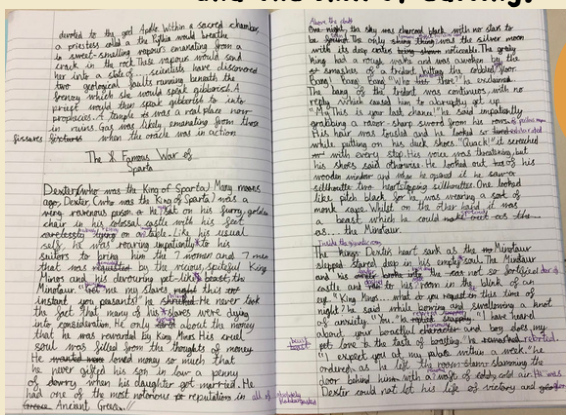 devoted to the god Apollo. Within a sacred chamber,
a priestess called a the Pythia would breathe
in sweet-smelling vapours emanating from a
crack in the rock. These vapours would send
her into a state of ... scientists have discovered
two geological faults running beneath the
frenzy which she would speak gibberish. A
priest would then speak gibberish to into
prophecies. A temple is was a real place now
in ruins. Gas was likely emanating from those
fissures when the oracle was in action
The Famous War of
Sparta
Dexter (who was the King of Sparta) Many moons
ago, Dexter (who was the King of Sparta) was a
very ravenous person. He sat on his furry, golden
chair in his colossal castle with his feet
on a table. Like his usual
self, he was roaring impatiently to his
sailors to bring him the 7 women and 7 men
that was by the vicious, spiteful King
Minos and his devouring pet-like beast, the
Minotaur. "Get me my slaves right this
instant you peasants!" he He never took
the fact that many of his slaves were dying
into consideration. He only about the money
that he was rewarded by King Minos. His cruel
soul was filled from the thoughts of money.
He loved money so much that
he never gifted his son in law a penny
of dowry when his daughter got married. He
had one of the most notorious reputations in all of
Ancient Greece.
Above the clouds
One night, the sky was charcoal black with nor stars to
be found. The only shining thing was the silver moon
with its deep craters being shown noticeable. The greedy
King had a rough wake and was awoken by the
smashes of a trident hitting the cobbled floor.
Bang! Bang! Bang! "Who that" he exclaimed.
The bang of the trident was continuous with no
reply which caused him to abruptly get up.
"My This is your last chance!" he said impatiently
grabbing a razor-sharp sword from his
His hair was tousled and he looked so
while putting on his duck shoes. "Quack!" it screeched
with every step. His voice was threatening but
his shoes said otherwise. He looked out of his
wooden window and when he opened it he saw a
silhouette two heartstopping silhouettes. One looked
like pitch black for he was wearing a sort of
monk cape whilst on the other hand, it was
a beast which he could make out as the...
as.... the Minotaur.
Inside the
The kings Dexter's heart sank as the Minotaur
stared deep in his empty soul. The Minotaur
and his the not so fortified
castle and to his room in the blink of an
eye. "King Minos... what do you request on this time of
night? he said while and swallowing a knot
of anxiety. "You" he "I have heard
about your boastful character and boy does my
pet love the taste of boasting," he retorted.
"I expect you at my palace within a week." he
ordered as he left the room slamming the
door behind him with a waft of cold air. He was
Dexter could not let his life of victory and